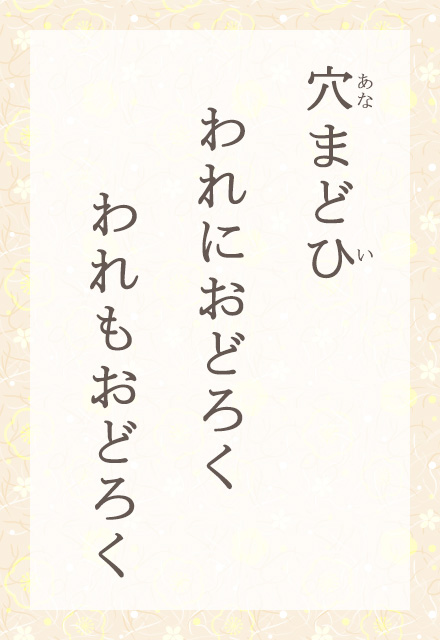 穴まどひ
あな
い
われにおどろく
われもおどろく